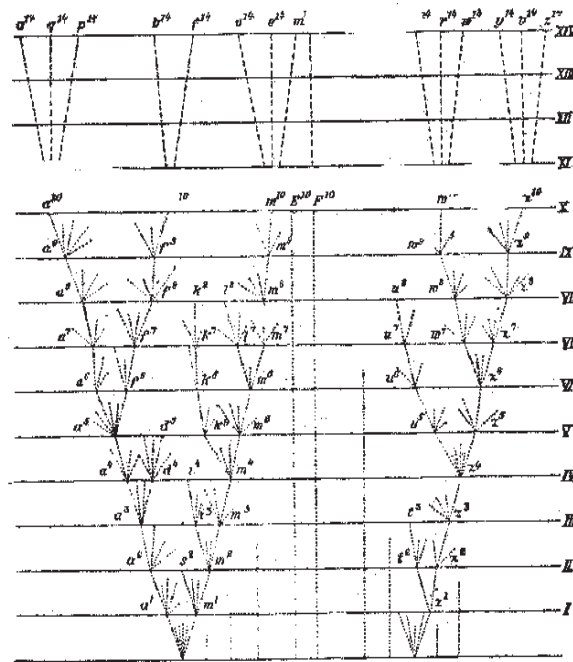 a¹⁴ q¹⁴ p¹⁴ b¹⁴ f¹⁴ o¹⁴ e¹⁴ m¹ ¹⁴ r¹⁴ w¹⁴ y¹⁴ v¹⁴ z¹⁴ XIV
XIII
XII
XI
a¹⁰ ¹⁰ m¹⁰ E¹⁰ F¹⁰ z¹⁰ X
a⁹ f⁹ m⁹ w⁹ z⁹ IX
a⁸ f⁸ k⁸ l⁸ m⁸ u⁸ w⁸ z⁸
a⁷ f⁷ k⁷ l⁷ m⁷ u⁷ w⁷ z⁷
a⁶ f⁶ k⁶ m⁶ u⁶ z⁶
a⁵ d⁵ k⁵ m⁵ u⁵ z⁵ V
a⁴ d⁴ i⁴ m⁴ z⁴
a³ m³ t³ z³ III
a² s² m² t² z² II
a¹ m¹ z¹ I